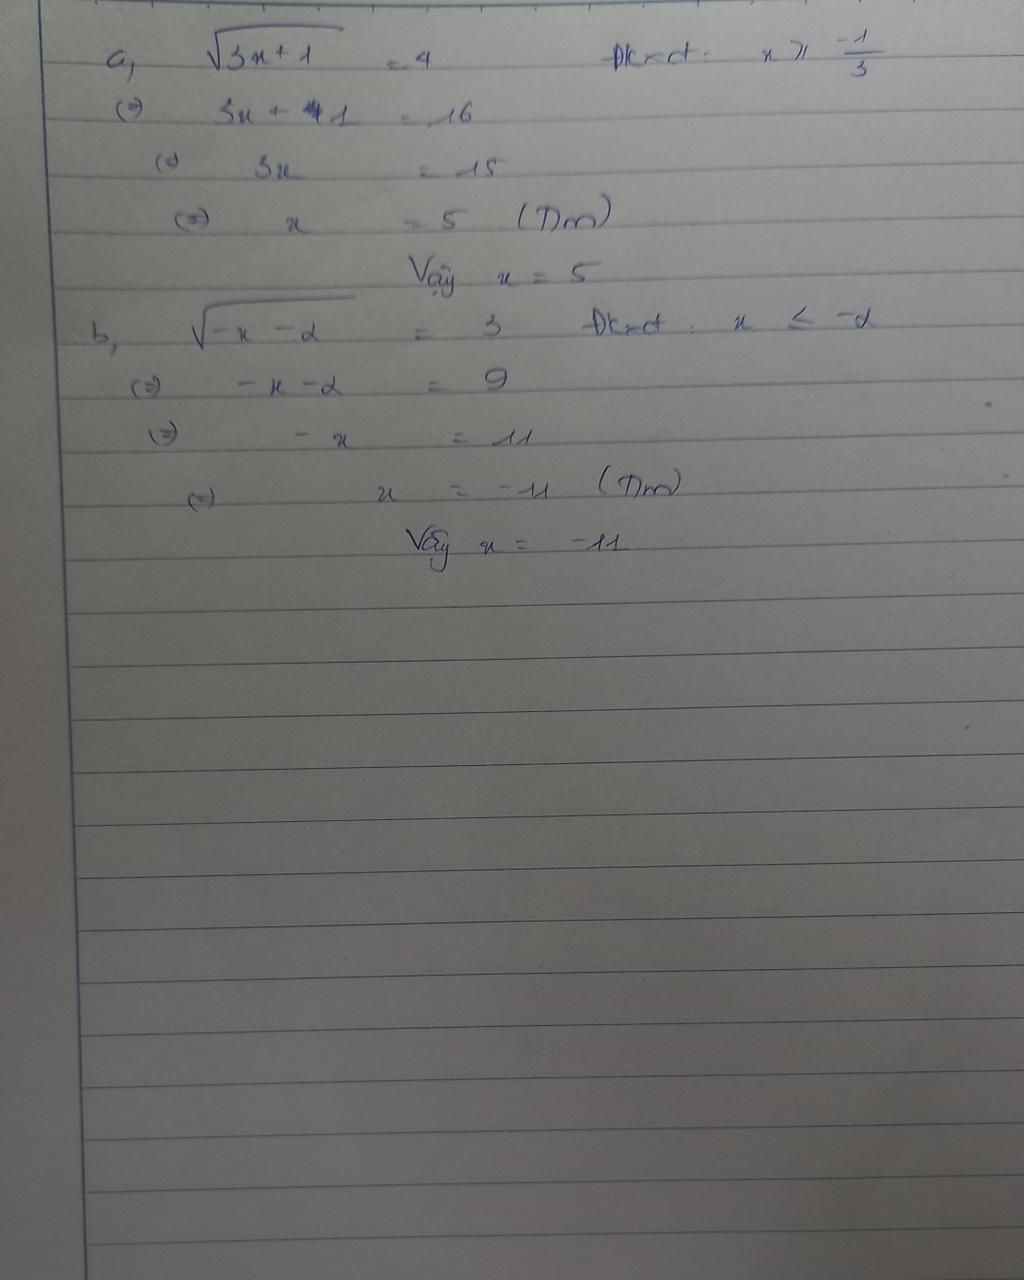 a, √3x+1 = 4 Đkxđ: x ≥ -1/3
(=) 3x + 1 = 16
(=) 3x = 15
(=) x = 5 (TDm)
Vậy x = 5
b, √-x-2 = 3 Đkxđ: x ≤ -2
(=) -x-2 = 9
(=) -x = 11
(=) x = -11 (TDm)
Vậy x = -11